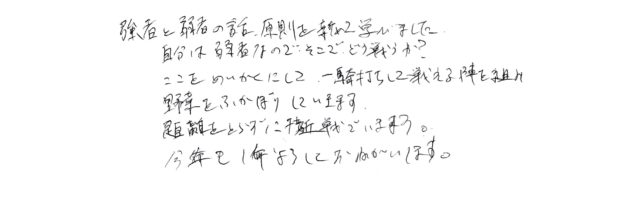 強者と弱者の話、原則を改めて学びました。
自分は弱者なので、そこで、どう戦うか?
ここをめいかくにして、一騎打ちして戦える陣を組み
をふかぼりしていきます。
距離をとらずに接近戦でいきます。
今年も1年よろしくおねがいします。